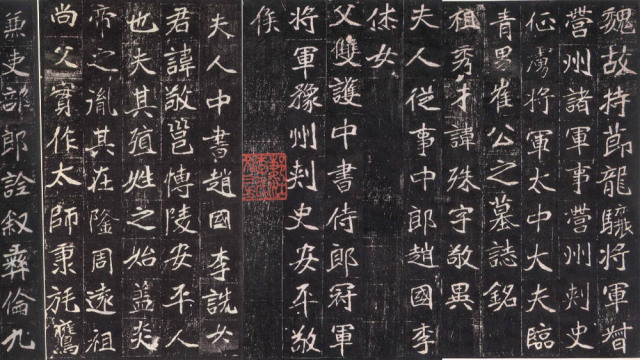 魏故持節龍驤將軍督
營州諸軍事營州刺史
征虜將軍太中大夫臨
青男崔公之墓誌銘
祖秀才諱殊字敬異
夫人從事中郎趙國李
休女
父雙護中書侍郎冠軍
將軍豫州刺史安平敬
侯
夫人中書趙國李詵女
君諱敬邕博陵安平人
也夫其殖姓之始蓋炎
帝之胤其在隆周遠祖
尚父實作太師秉旄鷹
兼吏部郎詮叙彝倫九